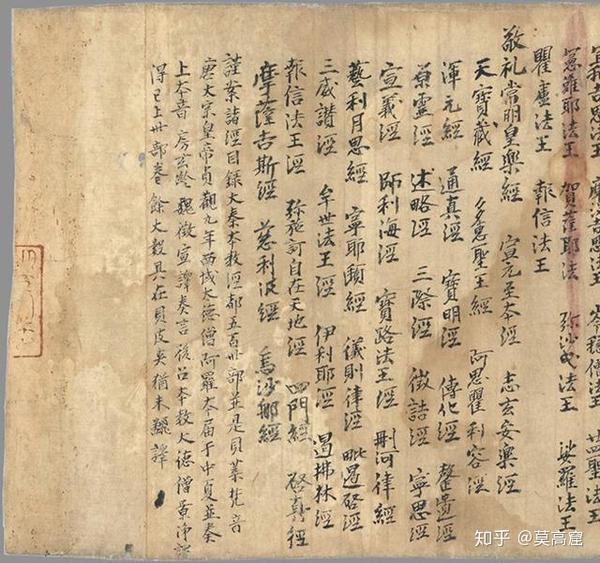 憲難耶法王 賀薩耶法 弥沙曳法王 娑羅法王
瞿盧法王 報信法王
敬礼常明皇樂經 宣元至本經 志玄安樂經
天寶藏經 多惠聖王經 阿思瞿利容經
渾元經 通真經 寶明經 傳化經 罄遺經
原靈經 述略經 三際經 徵詰經 寧思經
宣義經 師利海經 寶路法王經 刪河律經
藝利月思經 寧耶頲經 儀則律經 毗遏啓經
三威讚經 牟世法王經 伊利耶經 遏拂林經
報信法王經 弥施訶自在天地經 四門經 啓真經
摩薩吉斯經 慈利波經 烏沙郍經
謹案諸經目錄大秦本教經都五百卅部並是貝葉梵音
唐太宗皇帝貞觀九年西域太德僧阿羅本屆于中夏並奏
上本音房玄齡魏徵宣譯奏言後召本教大德僧景淨譯
得已上卅部卷餘大數具在貝皮夾猶未翻譯
知乎 @莫高窟